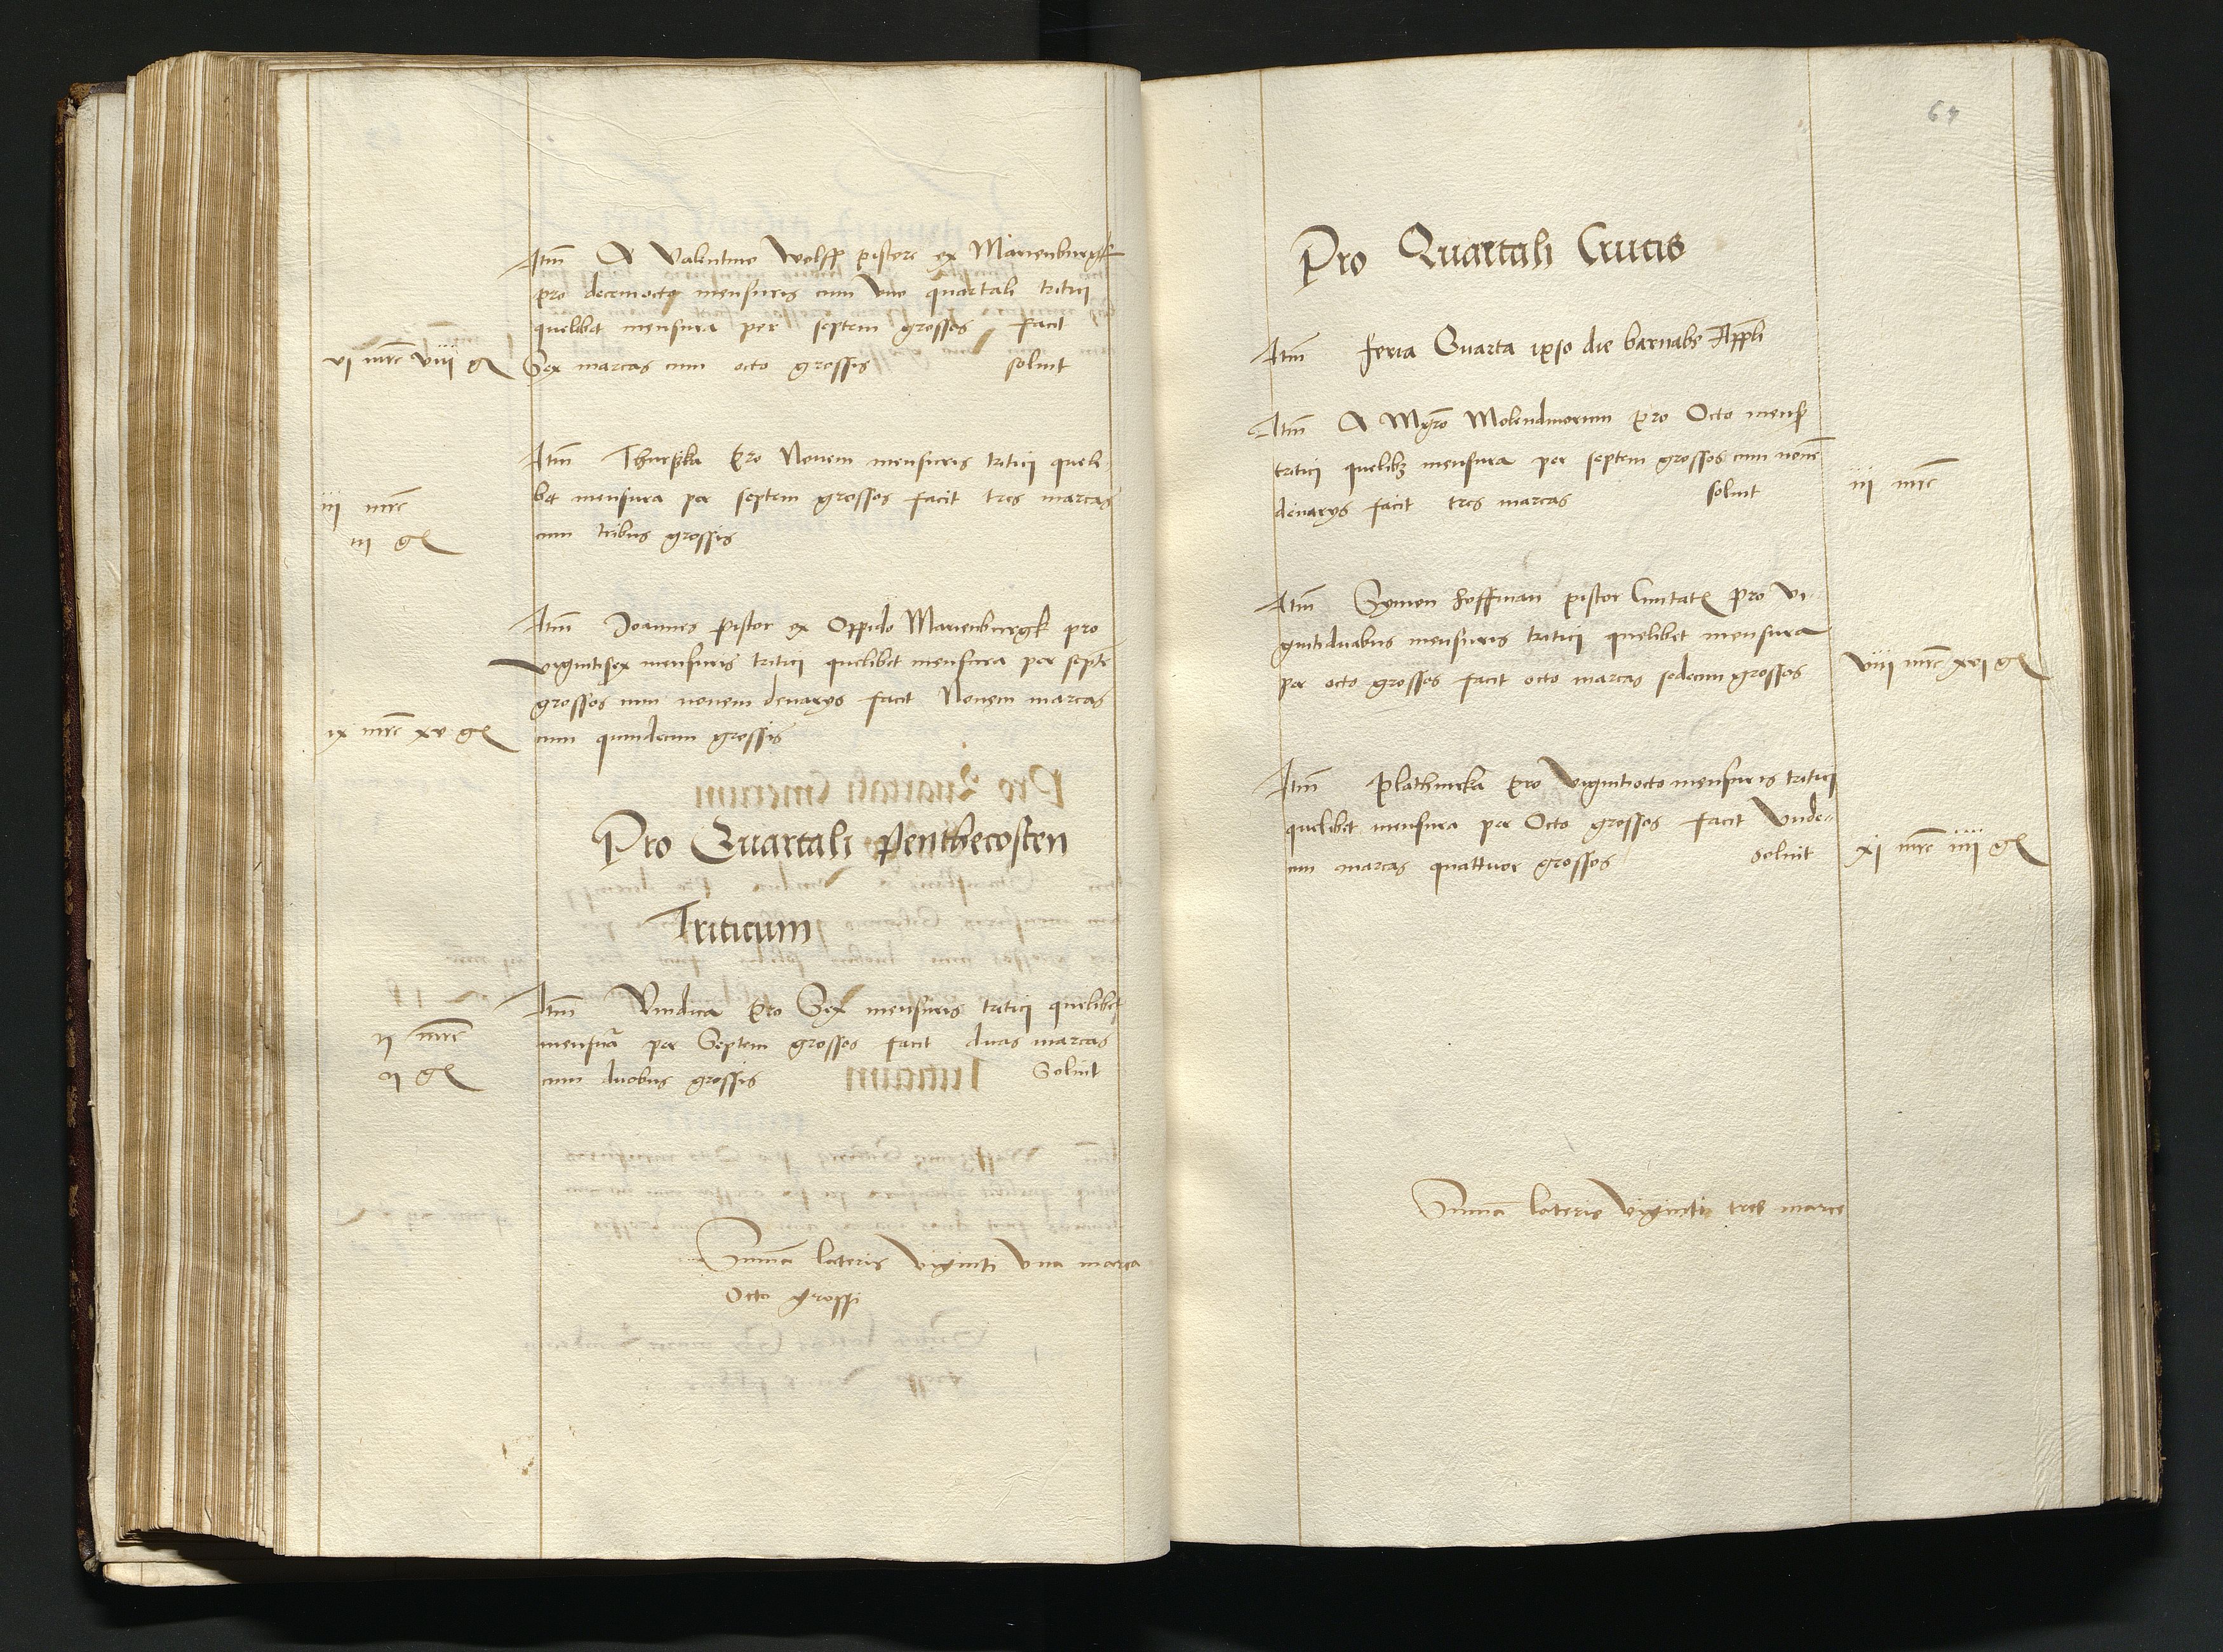 Itm A Valentino Wolff pistore ex Marienburgk
pro decemocto mensuris cum uno quartali tritici
quelibet mensura per septem grossos facit
vi mrc viii g Sex marcas cum octo grossis solvit
Itm Thurzka pro Novem mensuris tritici queli-
bet mensura per septem grossos facit tres marcas
iii mrc
cum tribus grossis
iii g
Itm Joannes Pistor ex Oppido Marienburgk pro
vigintisex mensuris tritici quelibet mensura per septē
grossos cum novem denarys facit Novem marcas
ix mrc xv g cum quindecim grossis
Pro Quartali Penthecosten
Triticum
Itm Vindica pro Sex mensuris tritici quelibet
ii mrc
mensura per Septem grossos facit duas marcas
ii g
cum duobus grossis Solvit
Summa lateris viginti una marca
Octo grossi
64
Pro Quartali Crucis
Itm feria Quarta ipso die barnabe Appli
Itm A Mgro Molendinorum pro Octo mensr
tritici quelibz mensura per septem grossos cum novē
denarys facit tres marcas solvit iii mrc
Itm Symon hoffman pistor Civitatis pro vi-
gintiduabus mensuris tritici quelibet mensura
per octo grossos facit octo marcas sedecim grossos viii mrc xvi g
Itm Plathnirka pro vigintiocto mensuris tritici
quelibet mensura per Octo grossos facit Unde-
cim marcas quattuor grossos solvit xi mrc iiii g
Summa lateris viginti tres marce